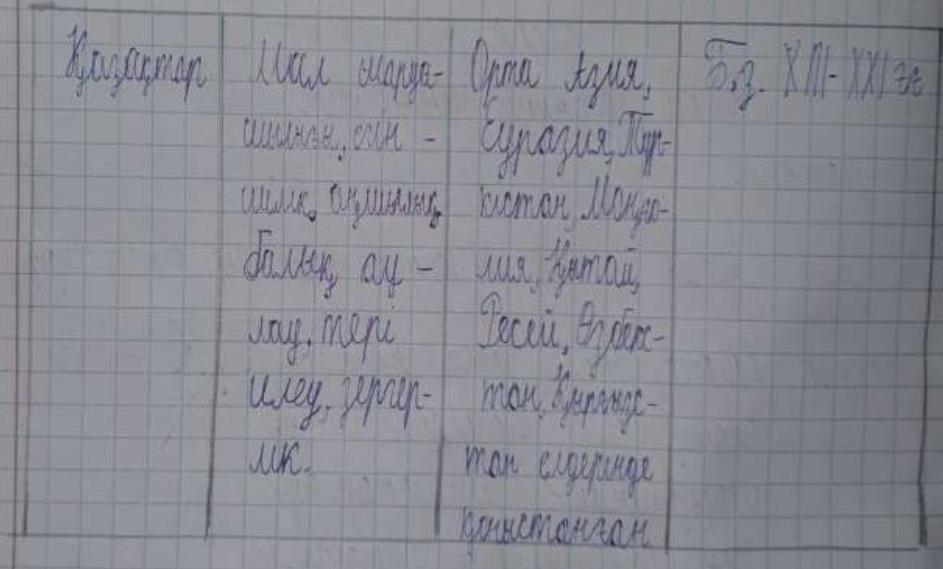 Қазақтар
Мал шаруа-
шылығы, егін -
шілік, аңшылық,
балық ау -
лау, тері
илеу, зергер-
лік.
Орта Азия,
Еуразия, Түр-
кістан, Моңғо-
лия, Қытай,
Ресей, Өзбекс-
тан, Қырғызс-
тан елдерінде
қоныстанған
Б.з. XIII-XXI ғғ